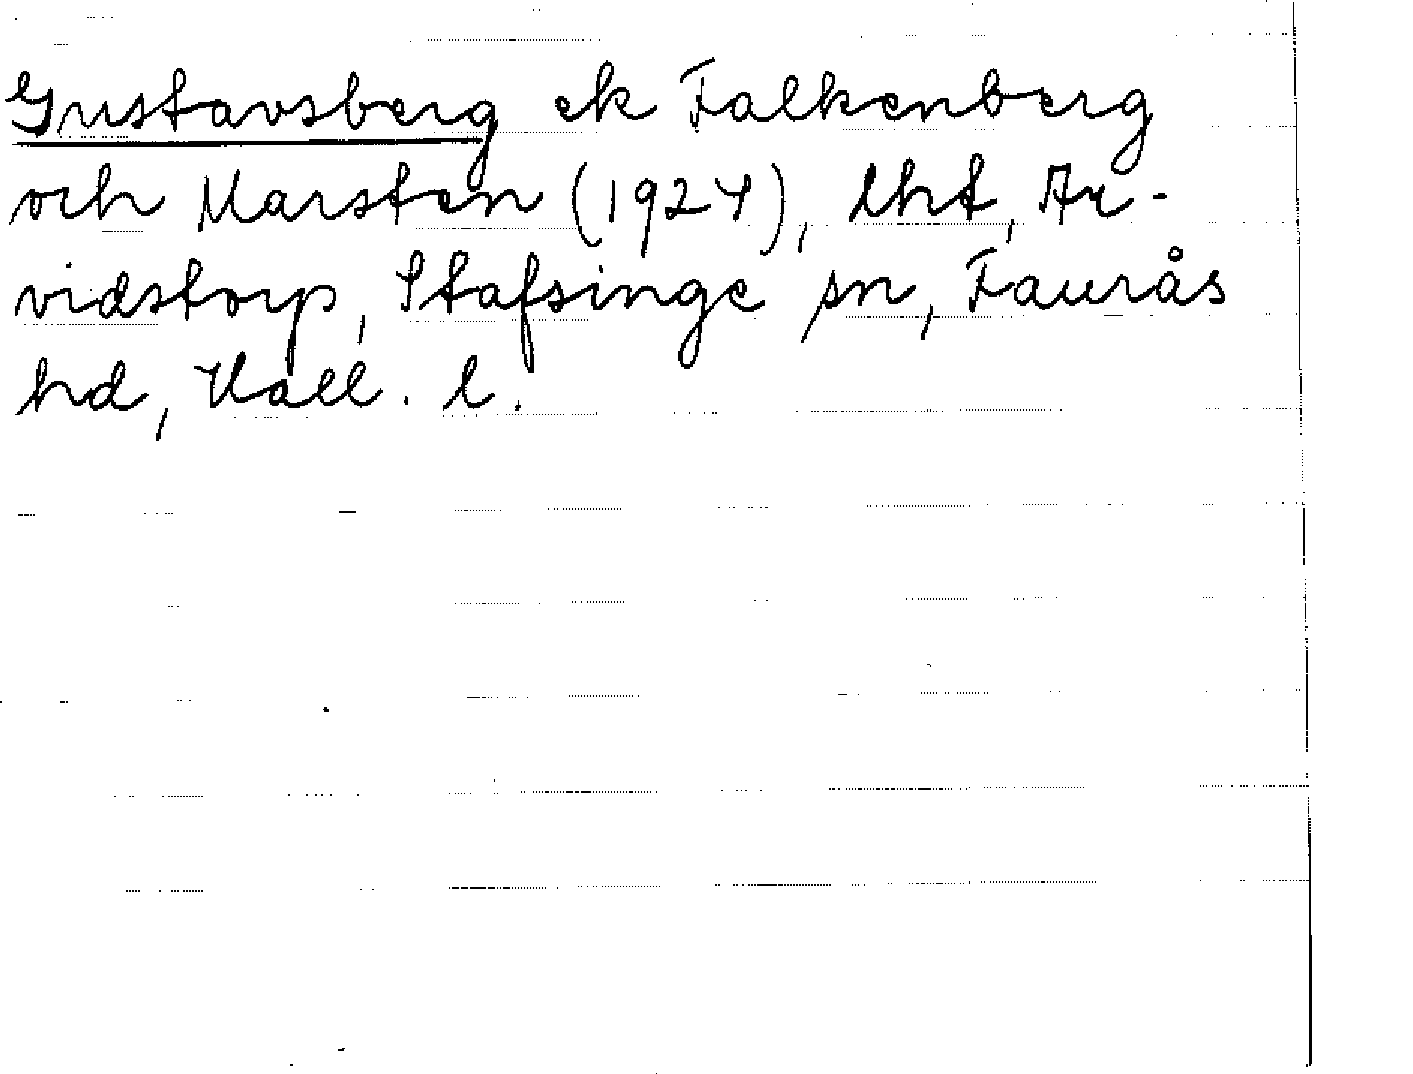 Gustavsberg ek Falkenberg
och Marsten (1924), lht, Ar-
vidstorp, Stafsinge sn, Faurås
hd, Hall. l.